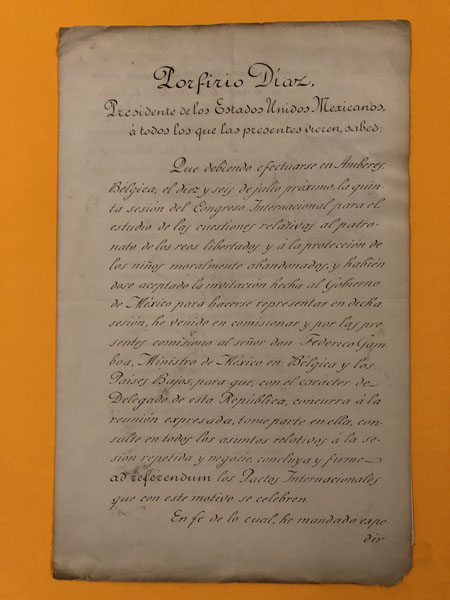 Porfirio Díaz,
Presidente de los Estados Unidos Mexicanos,
á todos los que las presentes vieren, sabed:
Que debiendo efectuarse en Amberes,
Bélgica, el diez y seis de julio próximo, la quin
ta sesión del Congreso Internacional para el
estudio de las cuestiones relativas al patro-
nato de los reos libertados y á la protección de
los niños moralmente abandonados, y habién
dose aceptado la invitación hecha al Gobierno
de México para hacerse representar en dicha
sesión, he venido en comisionar y por las pre-
sentes comisiono al señor don Federico Gam
boa, Ministro de México en Bélgica y los
Países Bajos, para que, con el carácter de
Delegado de esta República, concurra á la
reunión expresada, tome parte en ella, con-
sulte en todos los asuntos relativos á la se-
sión repetida y negocie, concluya y firme
ad referendum los Pactos Internacionales
que con este motivo se celebren.
En fe de lo cual, he mandado expe-
dir